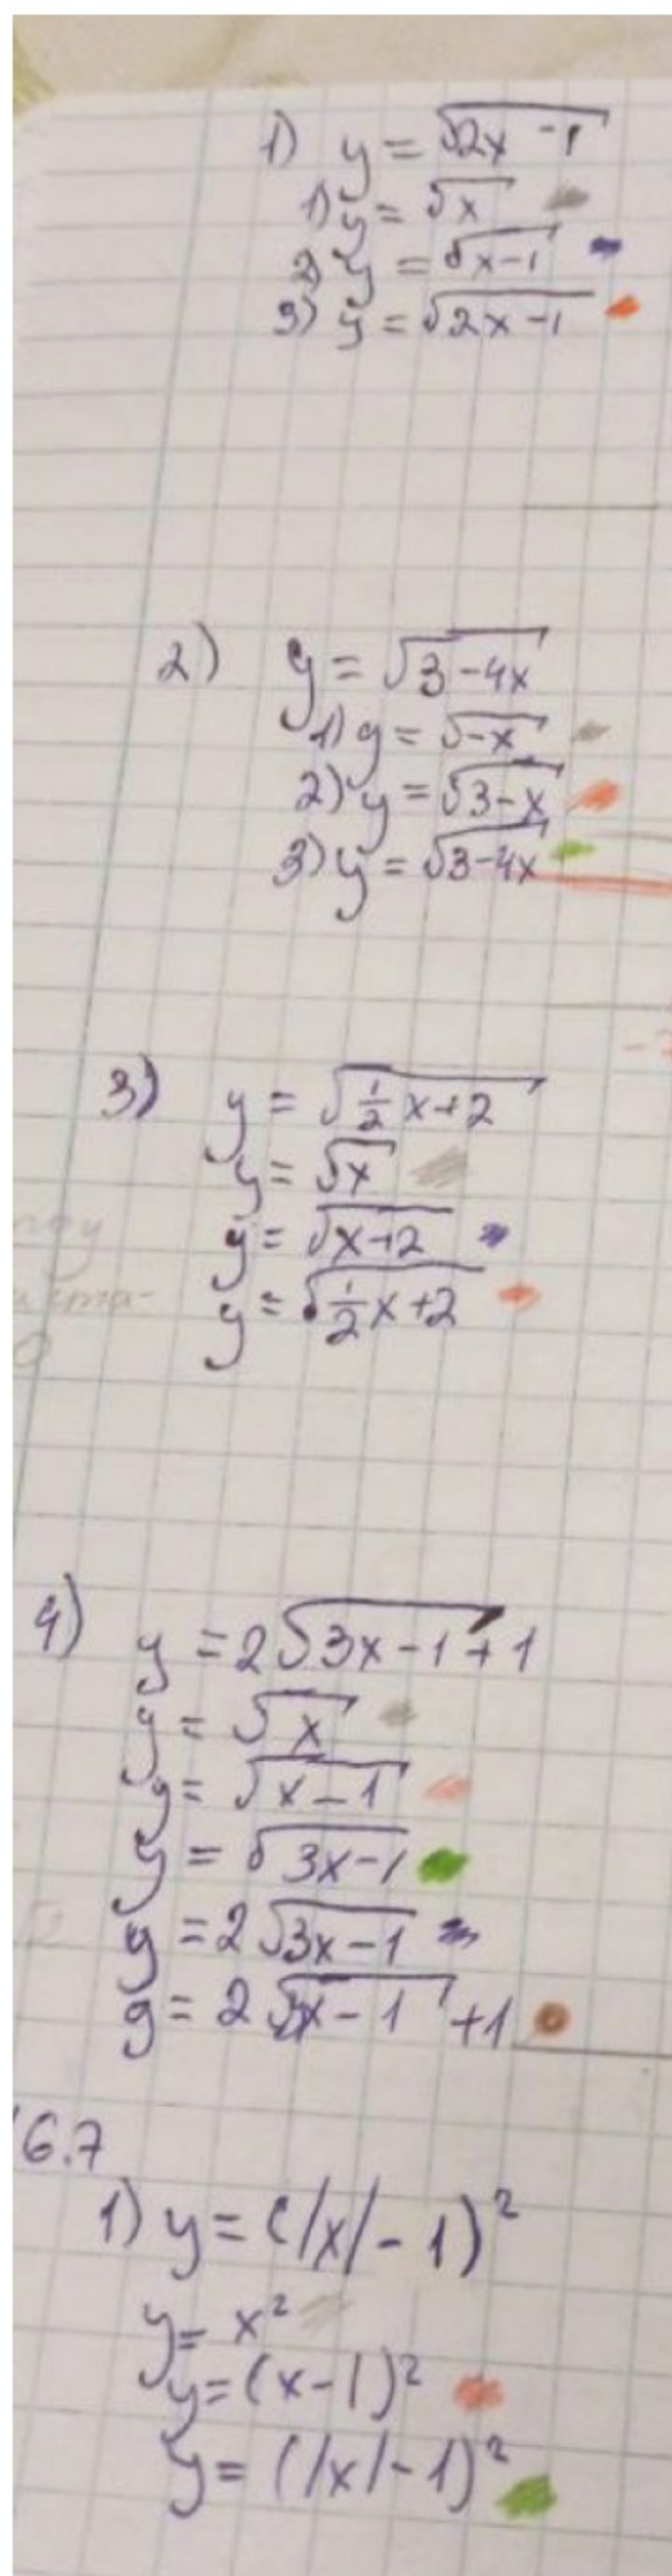 1) y = √2x - 1
1) y = √x
2) y = √x-1
3) y = √2x-1
2) y = √3-4x
1) y = √-x
2) y = √3-x
3) y = √3-4x
3) y = √1/2 x+2
y = √x
y = √x+2
y = √1/2 x+2
4) y = 2√3x-1 + 1
y = √x
y = √x-1
y = √3x-1
y = 2√3x-1
y = 2√3x-1 +1
6.7
1) y = (|x|-1)²
y = x²
y = (x-1)²
y = (|x|-1)²